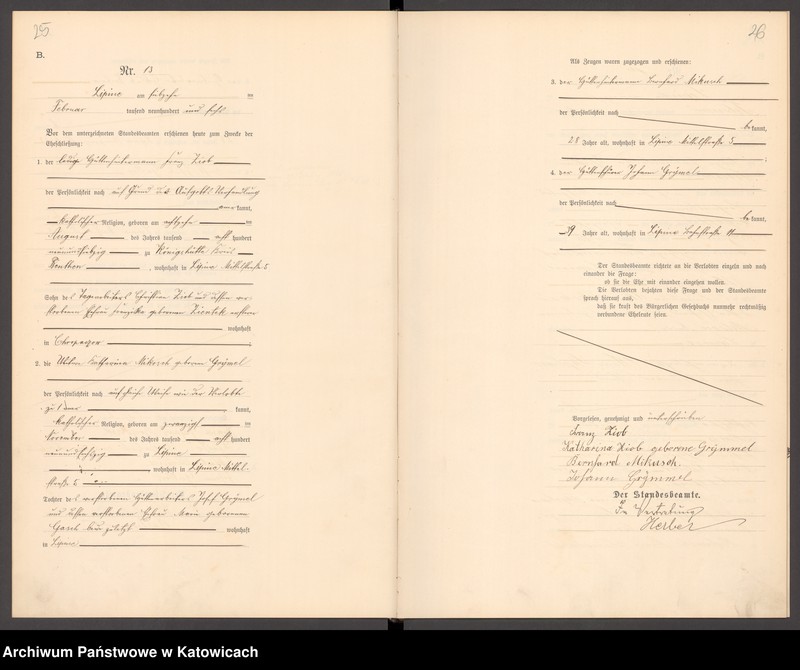 25
B.
Nr. 13
Lipine am sechzehn ten
Februar tausend neunhundert und sechs
Vor dem unterzeichneten Standesbeamten erschienen heute zum Zwecke der
Eheschließung:
1. der ledige Hüttenzimmermann Franz Ziob
der Persönlichkeit nach auf Grund der Aufgebots Verhandlung
kannt,
katholischer Religion, geboren am achtzehn ten
August des Jahres tausend acht hundert
zu Königshütte Kreis
Beuthen, wohnhaft in Lipine Mittelstraße 5
Sohn des Tagearbeiters Ziob und dessen ver-
storbenen Ehefrau Franziska geborenen Zientek
wohnhaft
in Chropaczow
2. die Witwe Katharina Mikosch geborene Grÿmmel
der Persönlichkeit nach auf gleiche Weise wie der Verlobte
zu 1 kannt,
katholischer Religion, geboren am zwanzigsten
November des Jahres tausend acht hundert
zu Lipine
wohnhaft in Lipine Mittel-
straße 5
Tochter des verstorbenen Hüttenarbeiters Josef Grÿmmel
und dessen verstorbenen Ehefrau Marie geborenen
zuletzt wohnhaft
in Lipine
26
Als Zeugen waren zugezogen und erschienen:
3. der Bernhard Mikusch
der Persönlichkeit nach
be kannt,
28 Jahre alt, wohnhaft in Lipine Mittelstraße 5
;
4. der Johann Grÿmmel
der Persönlichkeit nach
be kannt,
Jahre alt, wohnhaft in Lipine
Der Standesbeamte richtete an die Verlobten einzeln und nach
einander die Frage:
ob sie die Ehe mit einander eingehen wollen.
Die Verlobten bejahten diese Frage und der Standesbeamte
sprach hierauf aus,
daß sie kraft des Bürgerlichen Gesetzbuchs nunmehr rechtmäßig
verbundene Eheleute seien.
Vorgelesen, genehmigt und unterschrieben
Franz Ziob
Katharina Ziob geborene Grÿmmel
Bernhard Mikusch.
Johann Grÿmmel
Der Standesbeamte.
In Vertretung
Herber
Archiwum Państwowe w Katowicach